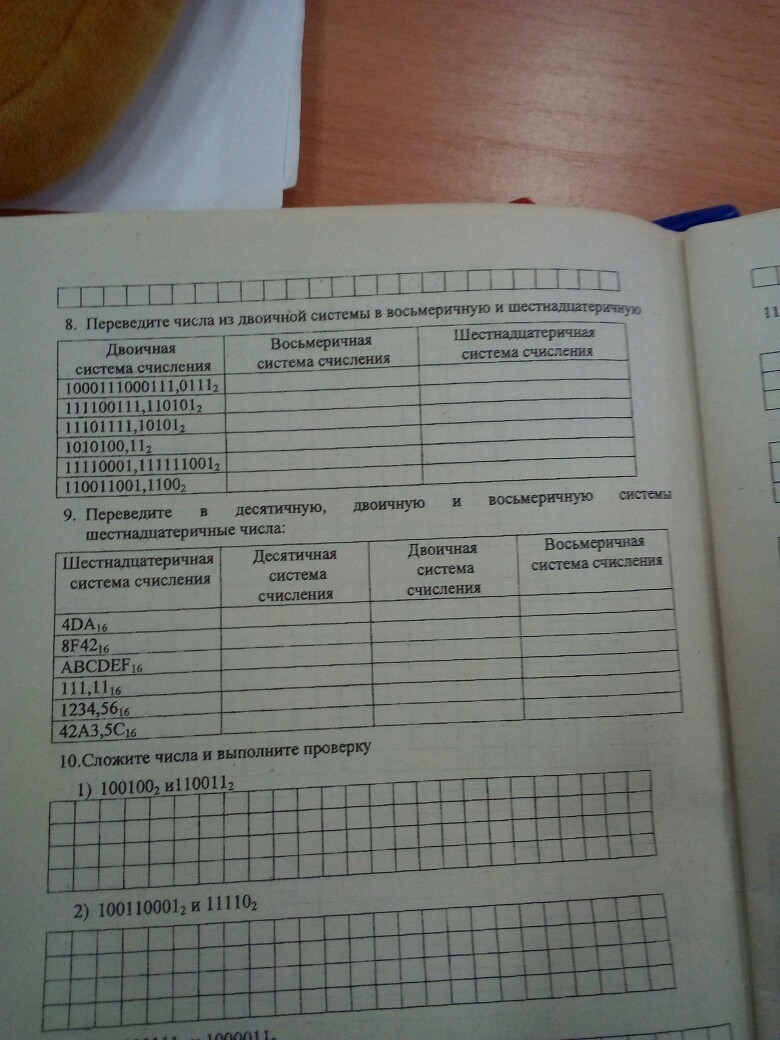 8. Переведите числа из двоичной системы в восьмеричную и шестнадцатеричную
Двоичная система счисления Восьмеричная система счисления Шестнадцатеричная система счисления
1000111000111,0111₂
111100111,110101₂
11101111,10101₂
1010100,11₂
11110001,111111001₂
110011001,1100₂
9. Переведите в десятичную, двоичную и восьмеричную системы
шестнадцатеричные числа:
Шестнадцатеричная система счисления Десятичная система счисления Двоичная система счисления Восьмеричная система счисления
4DA₁₆
8F42₁₆
ABCDEF₁₆
111,11₁₆
1234,56₁₆
42A3,5C₁₆
10.Сложите числа и выполните проверку
1) 100100₂ и110011₂
2) 100110001₂ и 11110₂
1000011₂
11